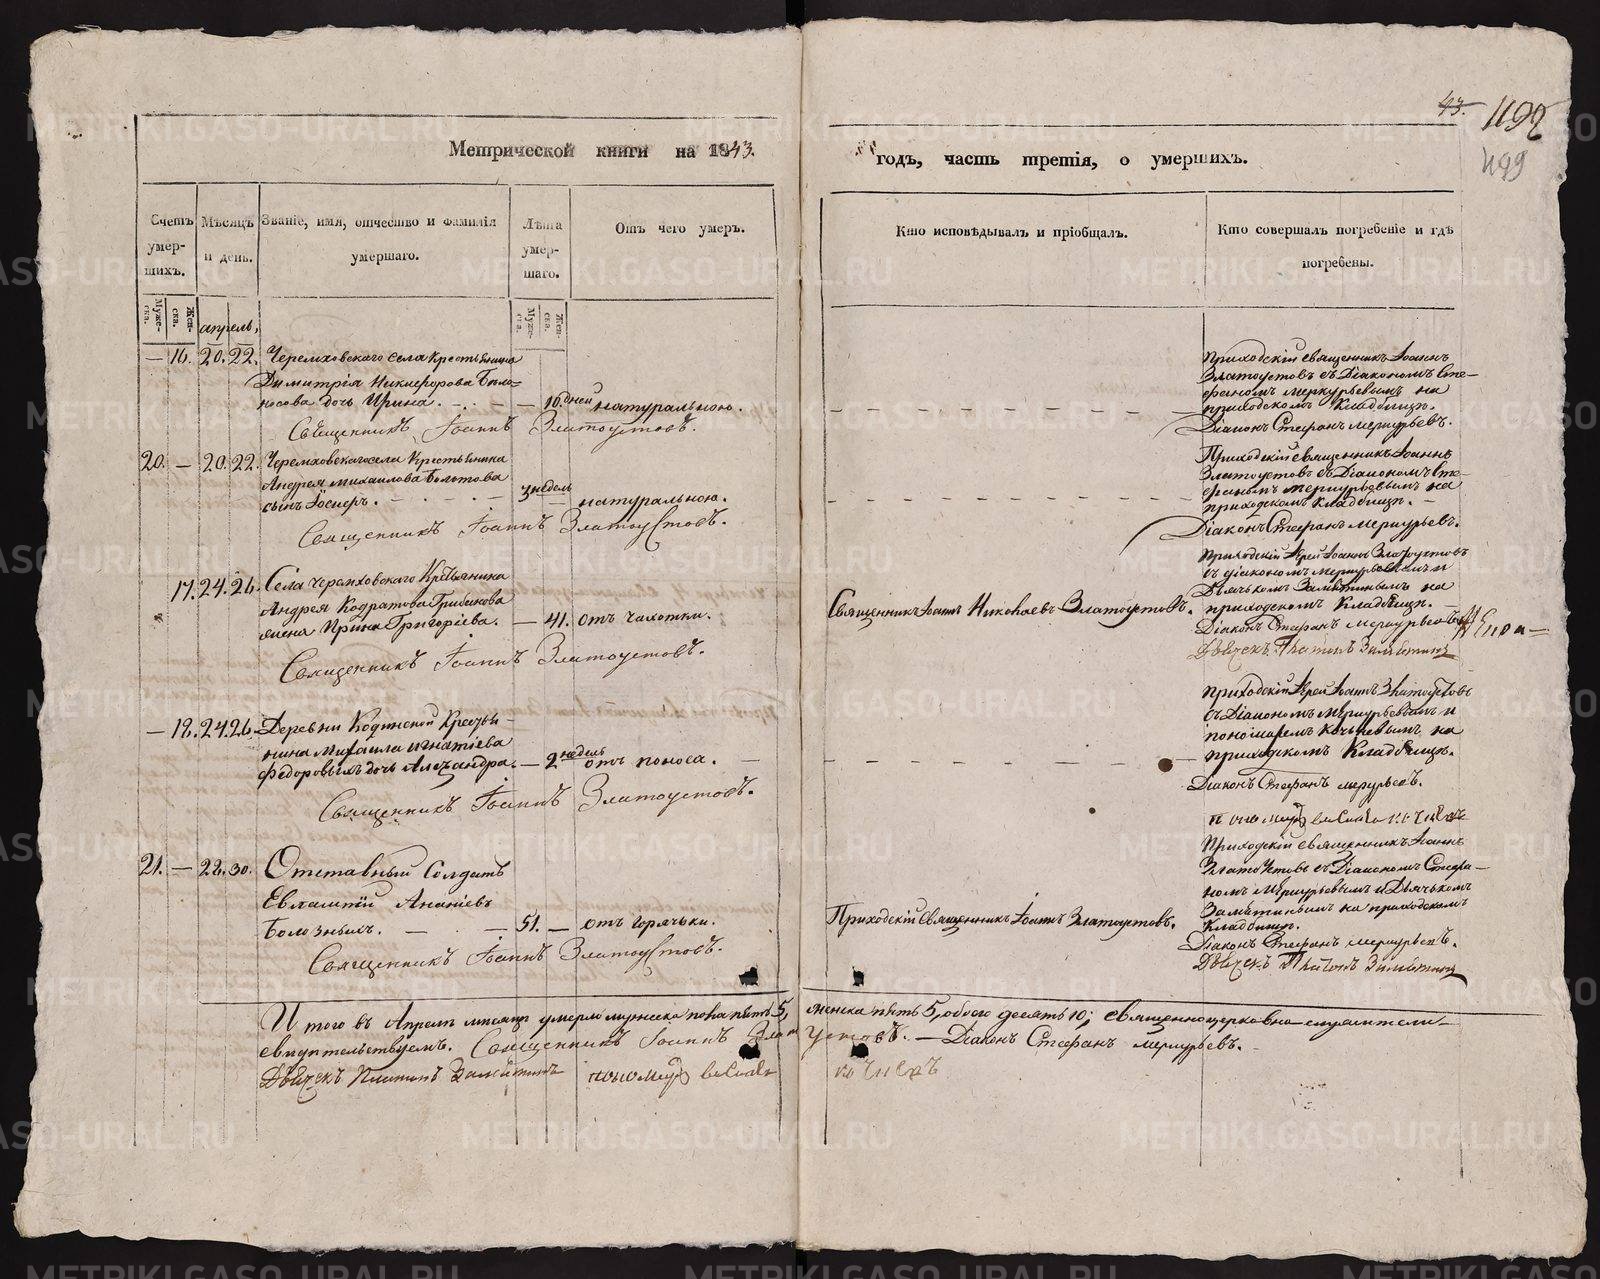 43.
1192
499
Метрической книги на 1843.
годъ, часть третія, о умершихъ.
Счетъ умер-шихъ.
Мѣсяцъ и день.
Званіе, имя, отчество и фамилія умершаго.
Лѣта умер-шаго.
Отъ чего умеръ.
Кто исповѣдывалъ и пріобщалъ.
Кто совершалъ погребеніе и гдѣ погребены.
Муже-ска.
Жен-ска.
Муже-ска.
Жен-ска.
апрель,
— 16. 20. 22. Черемховскаго села крестьянина
Димитрія Никифорова Бѣло-
носова дочь Ирина. — 16. дней натуральною.
Священникъ Іоаннъ Златоустовъ.
Приходскій священникъ Іоаннъ
Златоустовъ съ Діакономъ Сте-
фаномъ Меркурьевымъ на
приходскомъ Кладбищѣ.
Діаконъ Стефанъ Меркурьевъ.
20. — 20. 22. Черемховскаго села Крестьянина
Андрея Михаилова Болотова
сынъ Іосифъ. 3 недель натуральною.
Священникъ Іоаннъ Златоустовъ.
Приходскій священникъ Іоаннъ
Златоустовъ съ Діакономъ Сте-
фаномъ Меркурьевымъ на
приходскомъ Кладбищѣ.
Діаконъ Стефанъ Меркурьевъ.
17. 24. 26. Села Черемховскаго Крестьянина
Андрея Кодратова Грибанова
жена Ирина Григоріева. — 41. отъ чахотки.
Священникъ Іоаннъ Златоустовъ.
Священникъ Іоаннъ Николаевъ Златоустовъ.
Приходскій Іерей Іоаннъ Златоустовъ
съ діакономъ Меркурьевымъ и
Дьячькомъ Замятинымъ на
приходскомъ Кладбищѣ.
Діаконъ Стефанъ Меркурьевъ
Дьячекъ Платонъ Замятинъ
— 18. 24. 26. Деревни Кодинской Кресть-
нина Михаила Игнатіева
Федоровыхъ дочь Александра. — 2 недель отъ поноса.
Священникъ Іоаннъ Златоустовъ.
Приходскій Іерей Іоаннъ Златоустовъ
съ Діакономъ Меркурьевымъ и
пономаремъ Кочневымъ на
приходскомъ Кладбищѣ.
Діаконъ Стефанъ Меркурьевъ.
21. — 28. 30. Отставный Солдатъ
Евлампій Ананіевъ
51. — отъ горячьки.
Священникъ Іоаннъ Златоустовъ.
Приходскій Священникъ Іоаннъ Златоустовъ.
Приходскій священникъ Іоаннъ
Златоустовъ съ Діакономъ Стефа-
номъ Меркурьевымъ и Дьячькомъ
Замятинымъ на приходскомъ
Кладбищѣ.
Діаконъ Стефанъ Меркурьевъ.
Дьячекъ Платонъ Замятинъ
И того въ Апрелѣ мѣсяцѣ умерло мужеска пола пять 5, женска пять 5, обоего десять 10; священноцерковно-служители
свидѣтельствуемъ. Священникъ Іоаннъ Златоустовъ. — Діаконъ Стефанъ Меркурьевъ.
Дьячекъ Платонъ Замятинъ пономарь Кочневъ
METRIKI.GASO-URAL.RU